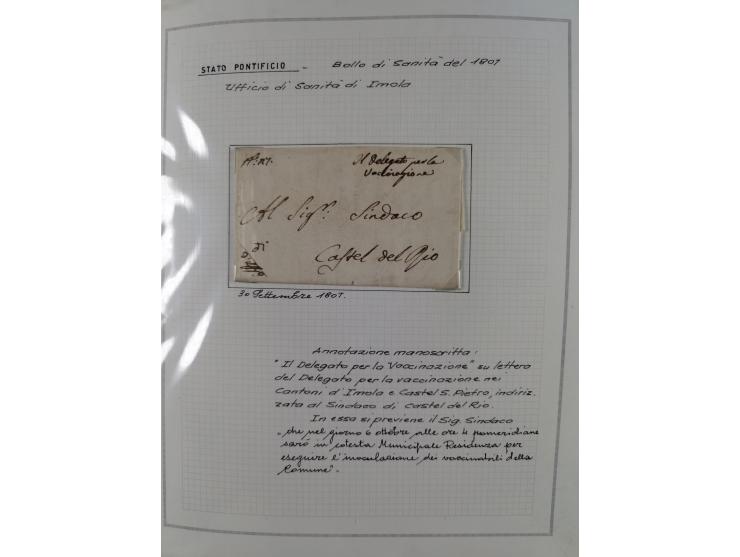 STATO PONTIFICIO - Bollo di Sanità del 1807
Ufficio di Sanità di Imola
Il Delegato per la
Vaccinazione
Al Sigr: Sindaco
di
Castel del Rio
30 Settembre 1807.
Annotazione manoscritta:
"Il Delegato per la Vaccinazione" su lettera
del Delegato per la vaccinazione nei
Cantoni d'Imola e Castel S. Pietro, indiriz_
zata al Sindaco di Castel del Rio.
In essa si previene il Sig. Sindaco
"che nel giorno 6 ottobre alle ore 4 pomeridiane
sarò in cotesta Municipale Residenza per
eseguire l'inoculazione dei vaccinabili della
Comune".